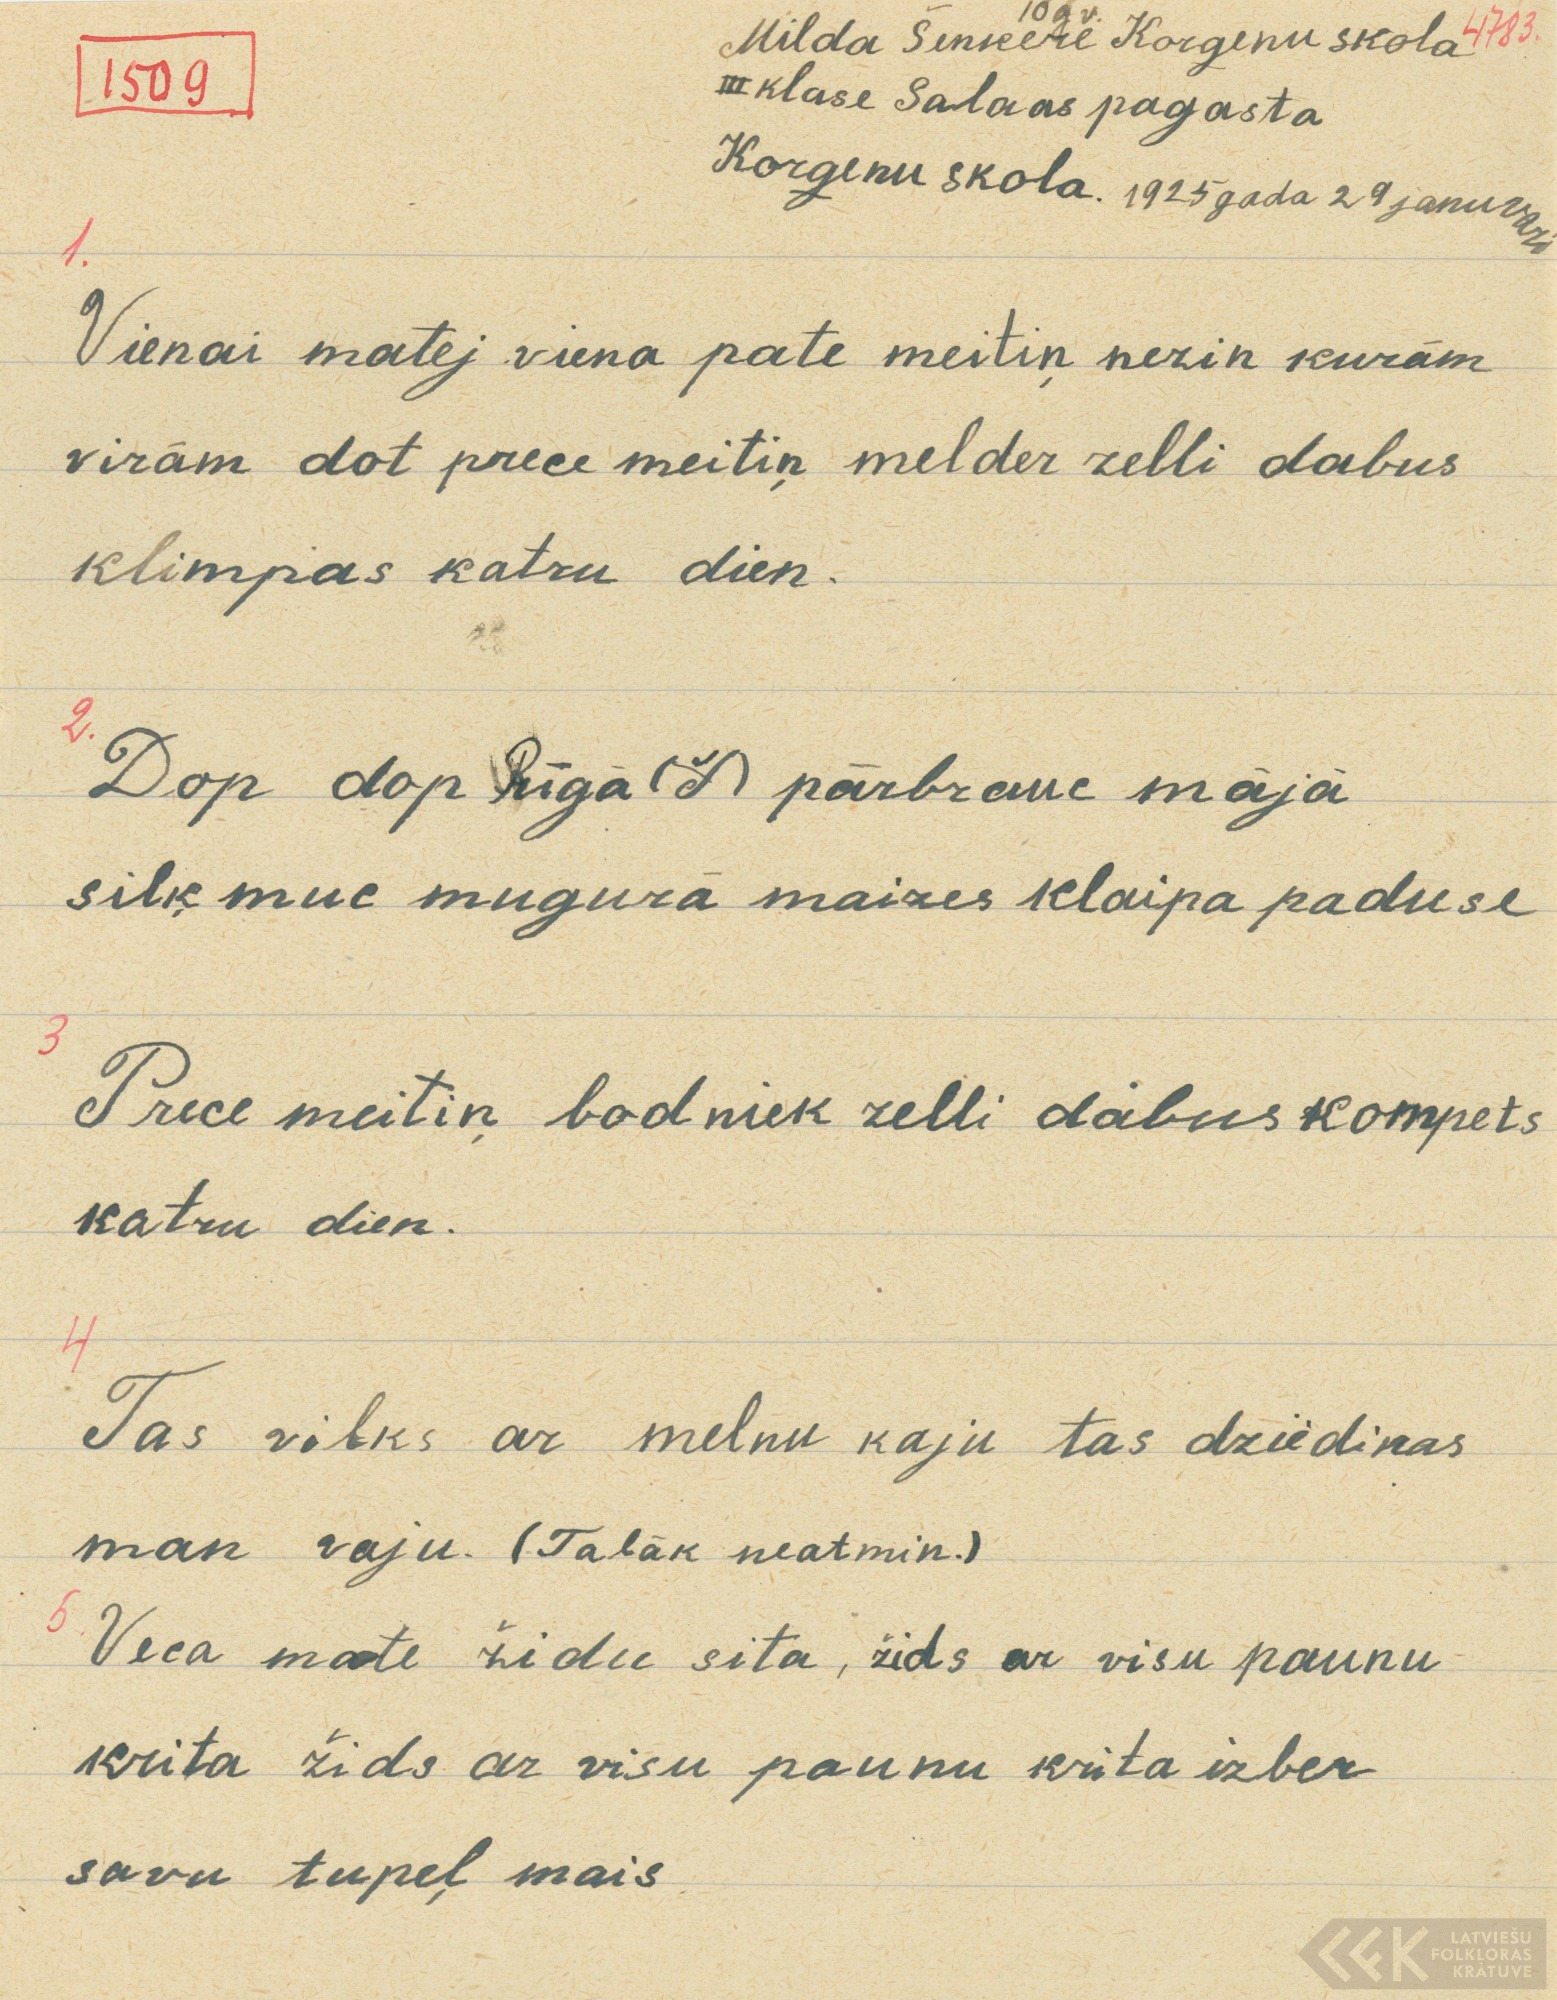 1509
10 g. v.
Milda Šenkere Korgenu skola 4783.
III klase Salaas pagasta
Korgenu skola. 1925 gada 29 januvari
1.
Vienai matej viena pate meitiņ nezin kurām
virām dot prece meitiņ melder zelli dabus
klimpas katru dien.
2.
Dop dop Rīgā (š) pārbrauc mājā
silķ muc mugurā maizes klaipa paduse
3
Prece meitiņ bodniek zelli dabus kompets
katru dien.
4
Tas vilks ar melnu kaju tas dziedinas
man vaju. (Talāk neatmin.)
5.
Veca mate židu sita, žids ar visu paunu
krita žids ar visu paunu krita izber
savu tupeļ mais
LATVIEŠU
FOLKLORAS
KRĀTUVE